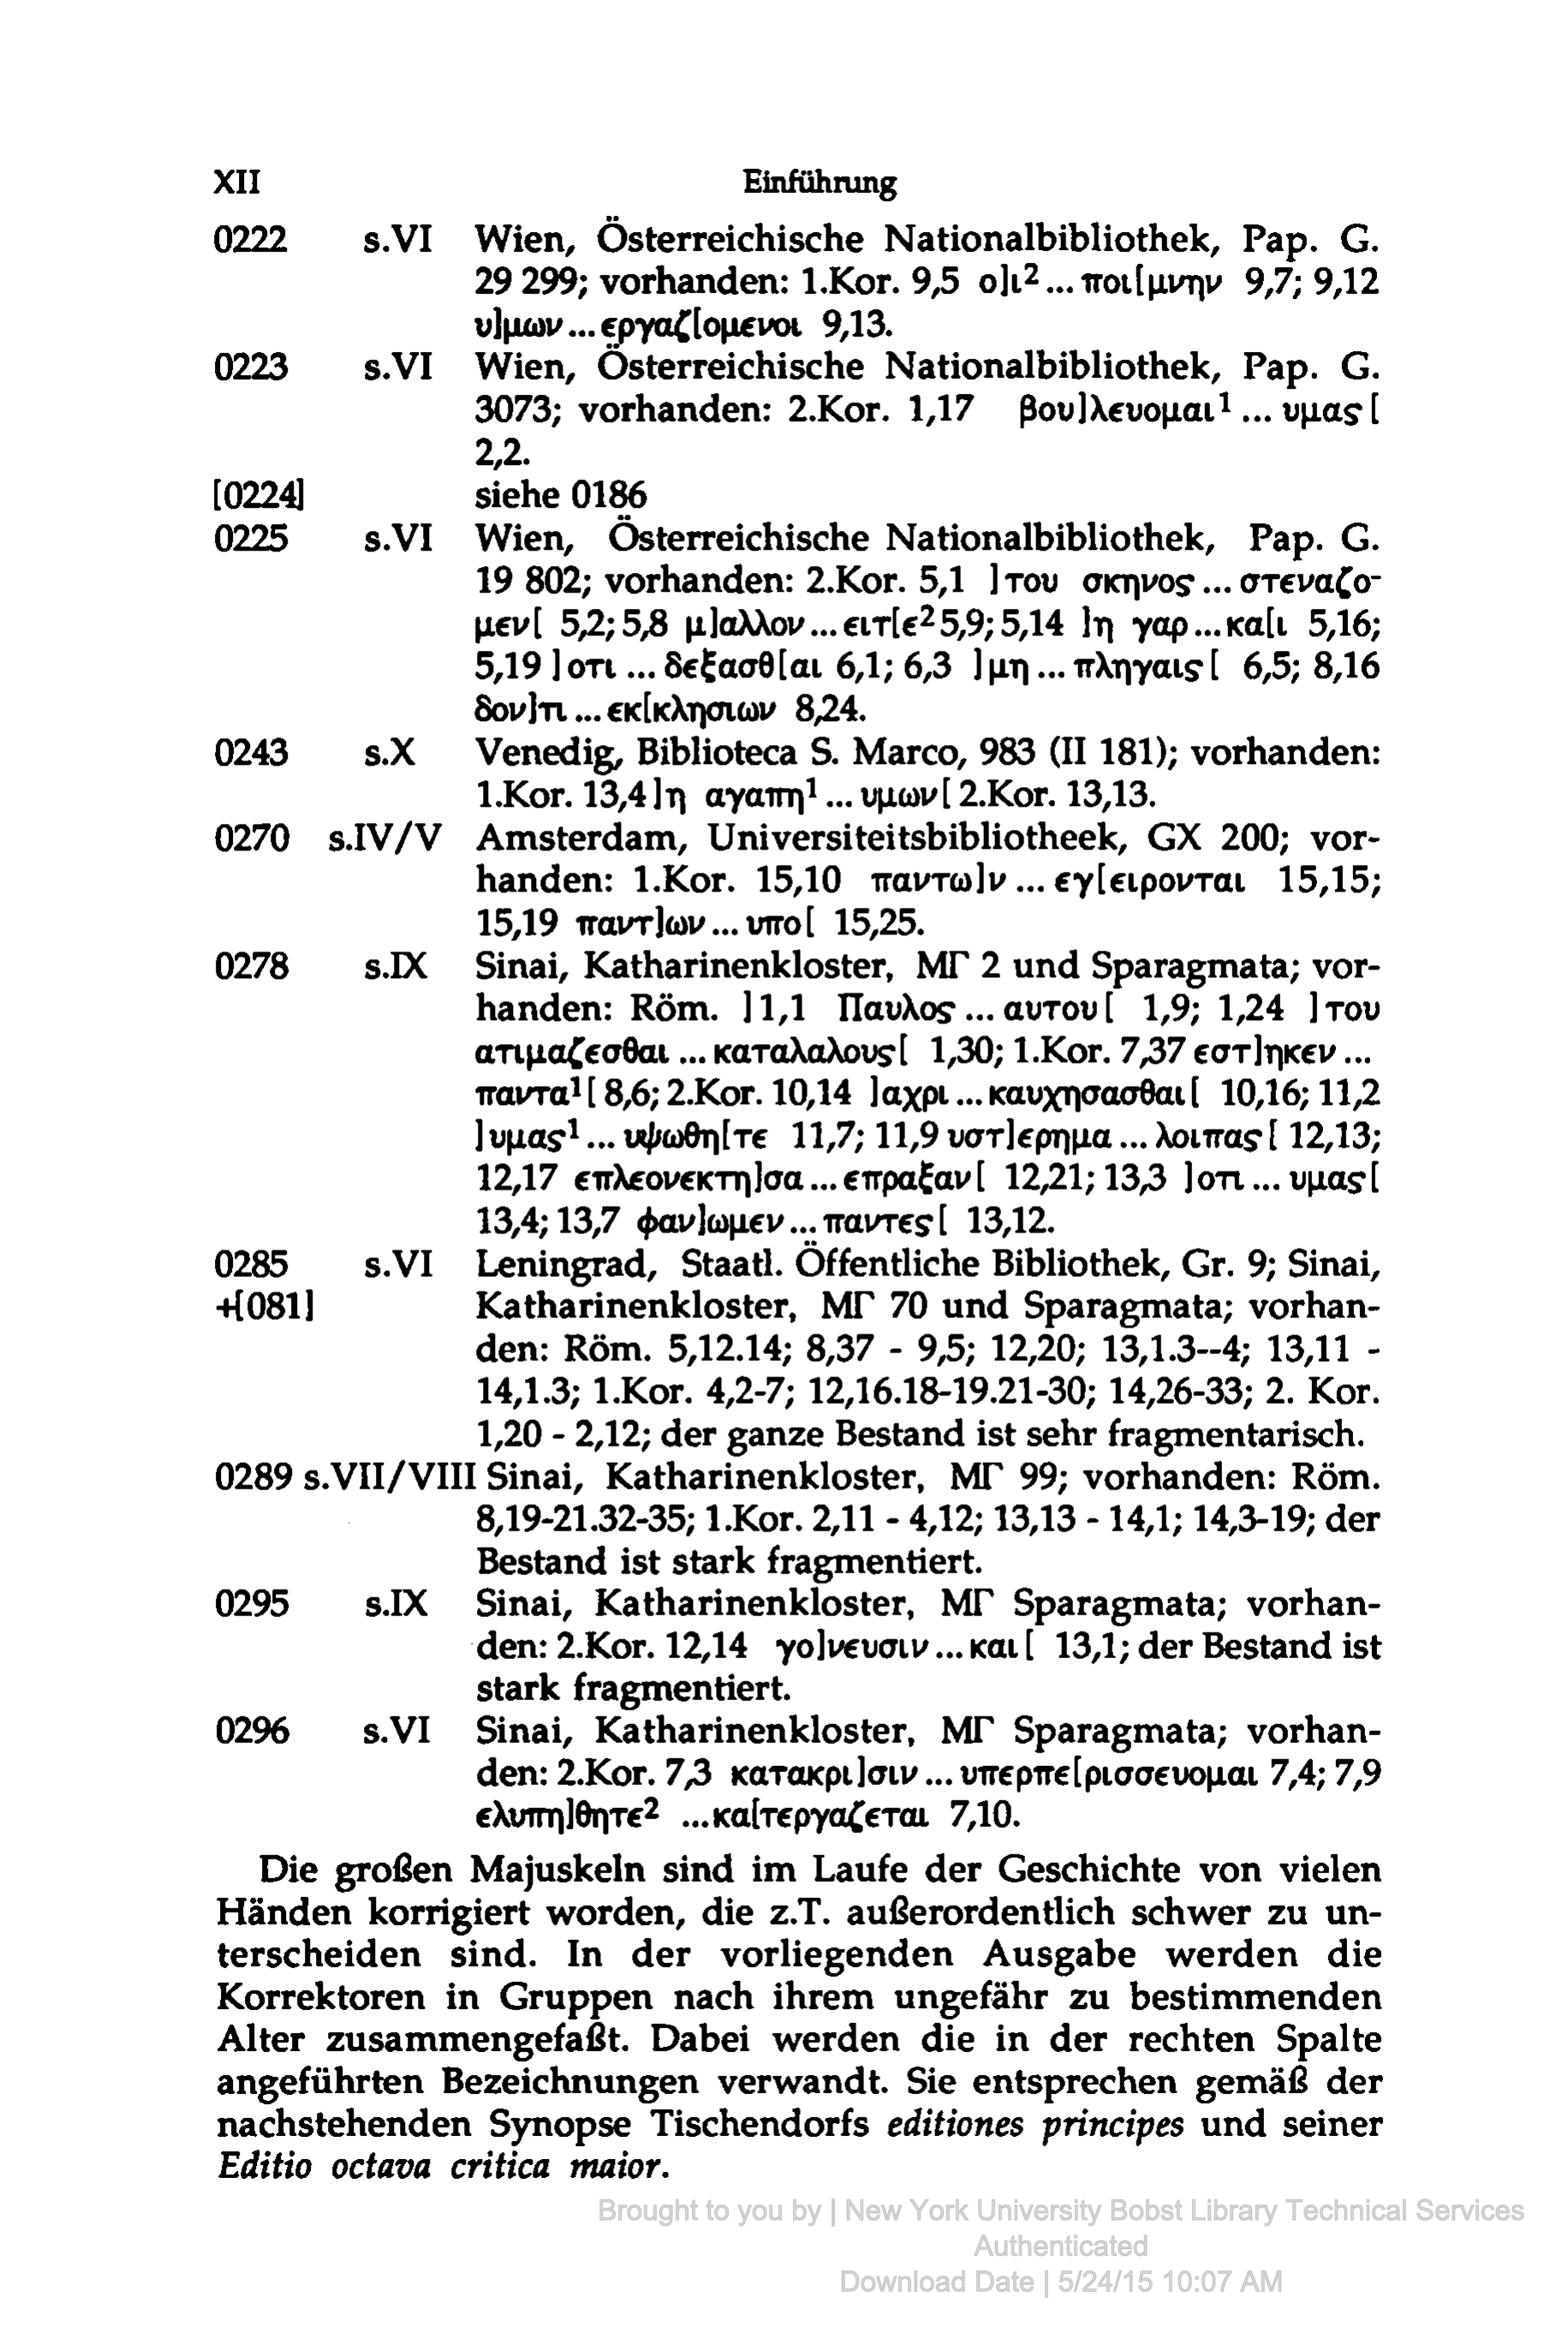 XII Einführung
0222 s.VI Wien, Österreichische Nationalbibliothek, Pap. G.
29 299; vorhanden: 1.Kor. 9,5 ο]ι² ... ποι[μνην 9,7; 9,12
υ]μων ... εργαζ[ομενοι 9,13.
0223 s.VI Wien, Österreichische Nationalbibliothek, Pap. G.
3073; vorhanden: 2.Kor. 1,17 βου]λευομαι¹ ... υμας [
2,2.
[0224] siehe 0186
0225 s.VI Wien, Österreichische Nationalbibliothek, Pap. G.
19 802; vorhanden: 2.Kor. 5,1 ]του σκηνος ... στεναζο-
μεν[ 5,2; 5,8 μ]αλλον ... ειτ[ε² 5,9; 5,14 ]η γαρ ... κα[ι 5,16;
5,19 ]οτι ... δεξασθ[αι 6,1; 6,3 ]μη ... πληγαις [ 6,5; 8,16
δον]τι ... εκ[κλησιων 8,24.
0243 s.X Venedig, Biblioteca S. Marco, 983 (II 181); vorhanden:
1.Kor. 13,4 ]η αγαπη¹ ... υμων[ 2.Kor. 13,13.
0270 s.IV/V Amsterdam, Universiteitsbibliotheek, GX 200; vor-
handen: 1.Kor. 15,10 παντω]ν ... εγ[ειρονται 15,15;
15,19 παντ]ων ... υπο[ 15,25.
0278 s.IX Sinai, Katharinenkloster, ΜΓ 2 und Sparagmata; vor-
handen: Röm. ]1,1 Παυλος ... αυτου [ 1,9; 1,24 ]του
ατιμαζεσθαι ... καταλαλους[ 1,30; 1.Kor. 7,37 εστ]ηκεν ...
παντα¹[ 8,6; 2.Kor. 10,14 ]αχρι ... καυχησασθαι[ 10,16; 11,2
]υμας¹ ... υψωθη[τε 11,7; 11,9 υστ]ερημα ... λοιπας [ 12,13;
12,17 επλεονεκτη]σα ... επραξαν[ 12,21; 13,3 ]οτι ... υμας[
13,4; 13,7 φαν]ωμεν ... παντες [ 13,12.
0285 s.VI Leningrad, Staatl. Öffentliche Bibliothek, Gr. 9; Sinai,
+[081] Katharinenkloster, ΜΓ 70 und Sparagmata; vorhan-
den: Röm. 5,12.14; 8,37 - 9,5; 12,20; 13,1.3--4; 13,11 -
14,1.3; 1.Kor. 4,2-7; 12,16.18-19.21-30; 14,26-33; 2. Kor.
1,20 - 2,12; der ganze Bestand ist sehr fragmentarisch.
0289 s.VII/VIII Sinai, Katharinenkloster, ΜΓ 99; vorhanden: Röm.
8,19-21.32-35; 1.Kor. 2,11 - 4,12; 13,13 - 14,1; 14,3-19; der
Bestand ist stark fragmentiert.
0295 s.IX Sinai, Katharinenkloster, ΜΓ Sparagmata; vorhan-
den: 2.Kor. 12,14 γο]νευσιν ... και [ 13,1; der Bestand ist
stark fragmentiert.
0296 s.VI Sinai, Katharinenkloster, ΜΓ Sparagmata; vorhan-
den: 2.Kor. 7,3 κατακρι]σιν ... υπερπε[ρισσευομαι 7,4; 7,9
ελυπη]θητε² ...κα[τεργαζεται 7,10.
Die großen Majuskeln sind im Laufe der Geschichte von vielen
Händen korrigiert worden, die z.T. außerordentlich schwer zu un-
terscheiden sind. In der vorliegenden Ausgabe werden die
Korrektoren in Gruppen nach ihrem ungefähr zu bestimmenden
Alter zusammengefaßt. Dabei werden die in der rechten Spalte
angeführten Bezeichnungen verwandt. Sie entsprechen gemäß der
nachstehenden Synopse Tischendorfs editiones principes und seiner
Editio octava critica maior.
Brought to you by | New York University Bobst Library Technical Services
Authenticated
Download Date | 5/24/15 10:07 AM